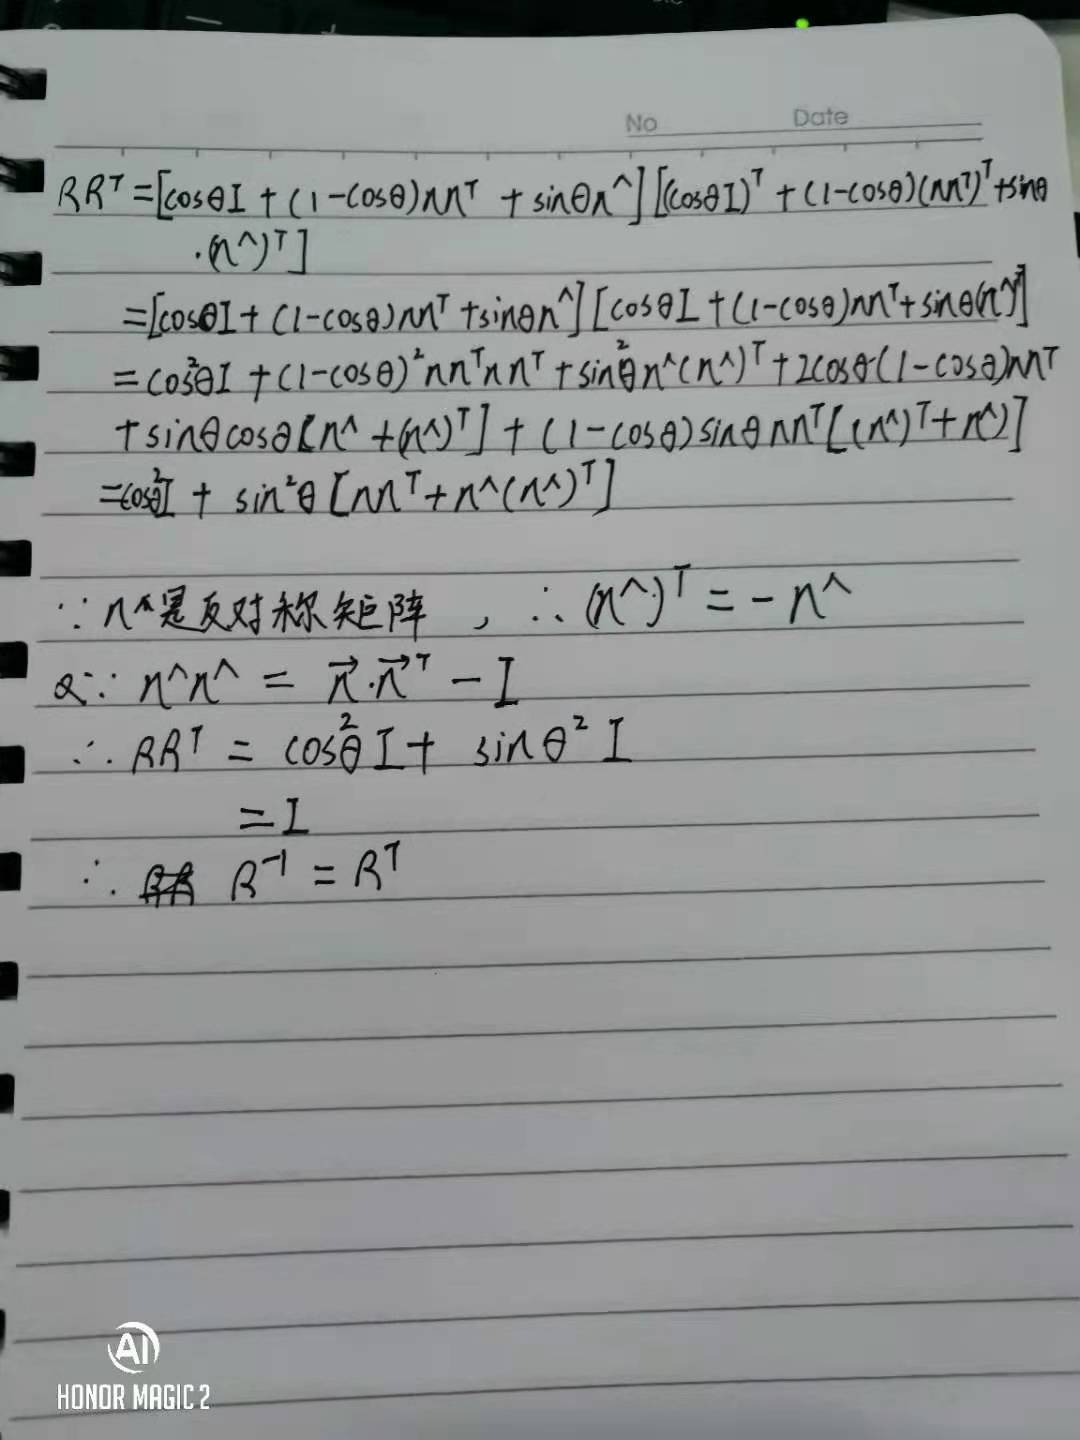 No Date
RRᵀ = [cosθI + (1-cosθ)nnᵀ + sinθn^][(cosθI)ᵀ + (1-cosθ)(nnᵀ)ᵀ + sinθ
·(n^)ᵀ]
= [cosθI + (1-cosθ)nnᵀ + sinθn^][cosθI + (1-cosθ)nnᵀ + sinθ(n^)ᵀ]
= cos²θI + (1-cosθ)²nnᵀnnᵀ + sin²θn^(n^)ᵀ + 2cosθ·(1-cosθ)nnᵀ
+ sinθcosθ[n^ + (n^)ᵀ] + (1-cosθ)sinθnnᵀ[(n^)ᵀ + n^]
= cos²θI + sin²θ[nnᵀ + n^(n^)ᵀ]
∵ n^是反对称矩阵 , ∴ (n^)ᵀ = -n^
又∵ n^n^ = n⃗·n⃗ᵀ - I
∴ RRᵀ = cos²θI + sinθ²I
= I
∴ R⁻¹ = Rᵀ
AI
HONOR MAGIC 2